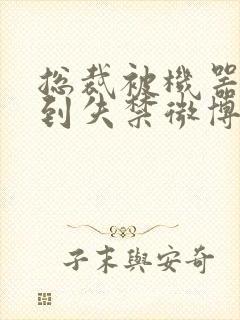 总裁被機器
到失禁微博
子末與安奇